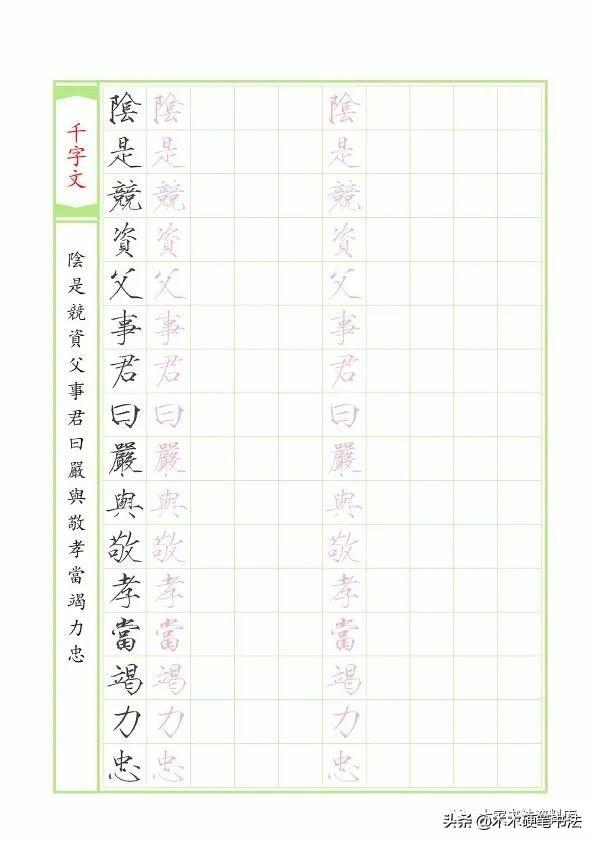 千字文
陰是競資父事君曰嚴與敬孝當竭力忠
陰是競資父事君曰嚴與敬孝當竭力忠
陰是競資父事君曰嚴與敬孝當竭力忠
陰是競資父事君曰嚴與敬孝當竭力忠
头条 @木木硬笔书法